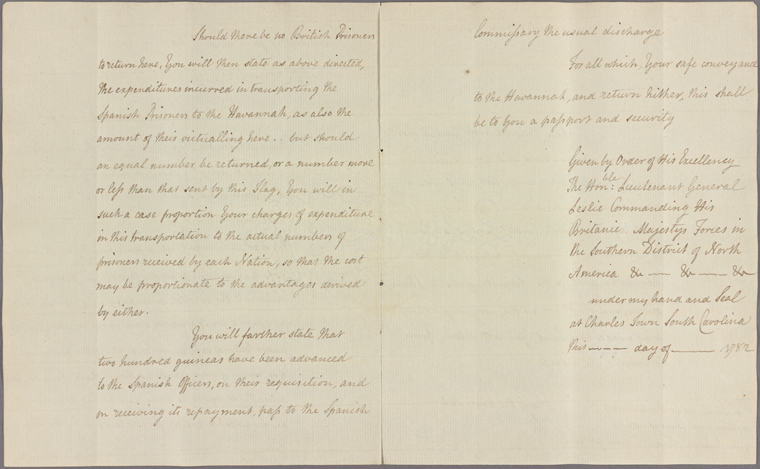 Should there be no British Prisoners
to return here, You will then state as above directed,
the expenditures incurred in transporting the
Spanish Prisoners to the Havannah, as also the
amount of their victualling here.. but should
an equal number be returned, or a number more
or less than that sent by this Flag, You will in
such a case proportion Your charges of expenditure
in this transportation to the actual numbers of
prisoners received by each Nation, so that the cost
may be proportionate to the advantages derived
by either.
You will farther state that
two hundred guineas have been advanced
to the Spanish Officers, on their requisition, and
on receiving its repayment, pass to the Spanish
Commissary the usual discharge
For all which, Your safe conveyance
to the Havannah, and return hither, this shall
be to you a passport and security
Given by Order of His Excellency
The Honble: Lieutenant General
Leslie Commanding His
Britanic Majestys Forces in
the Southern District of North
America &c —— &c —— &c
under my hand and Seal
at Charles Town South Carolina
this —— day of —— 1782